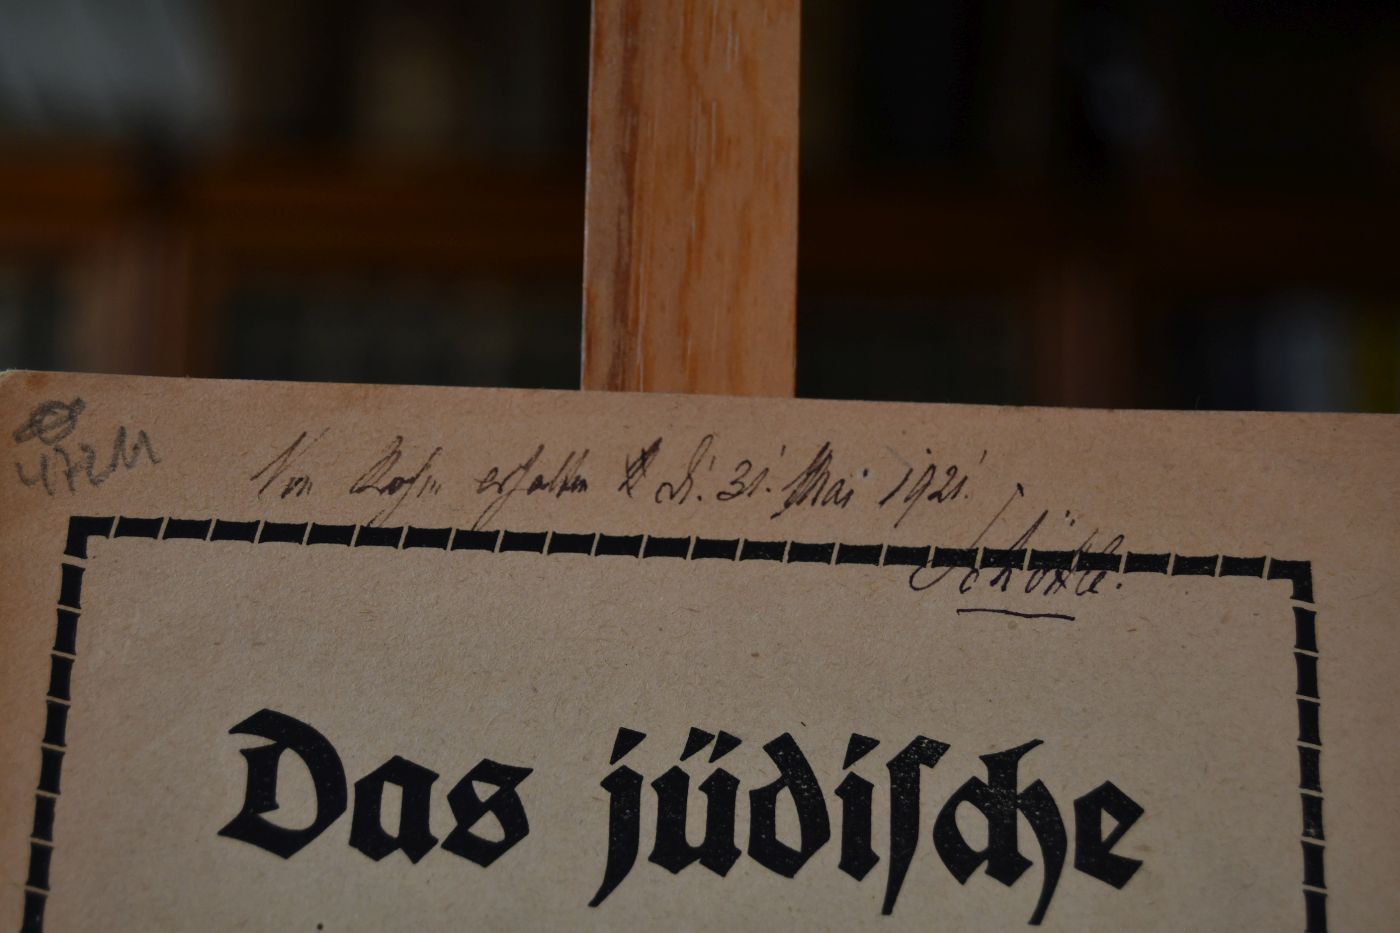 472M
Von Rohm erhalten d. 31. Mai 1921.
Schöttle.
Das jüdische